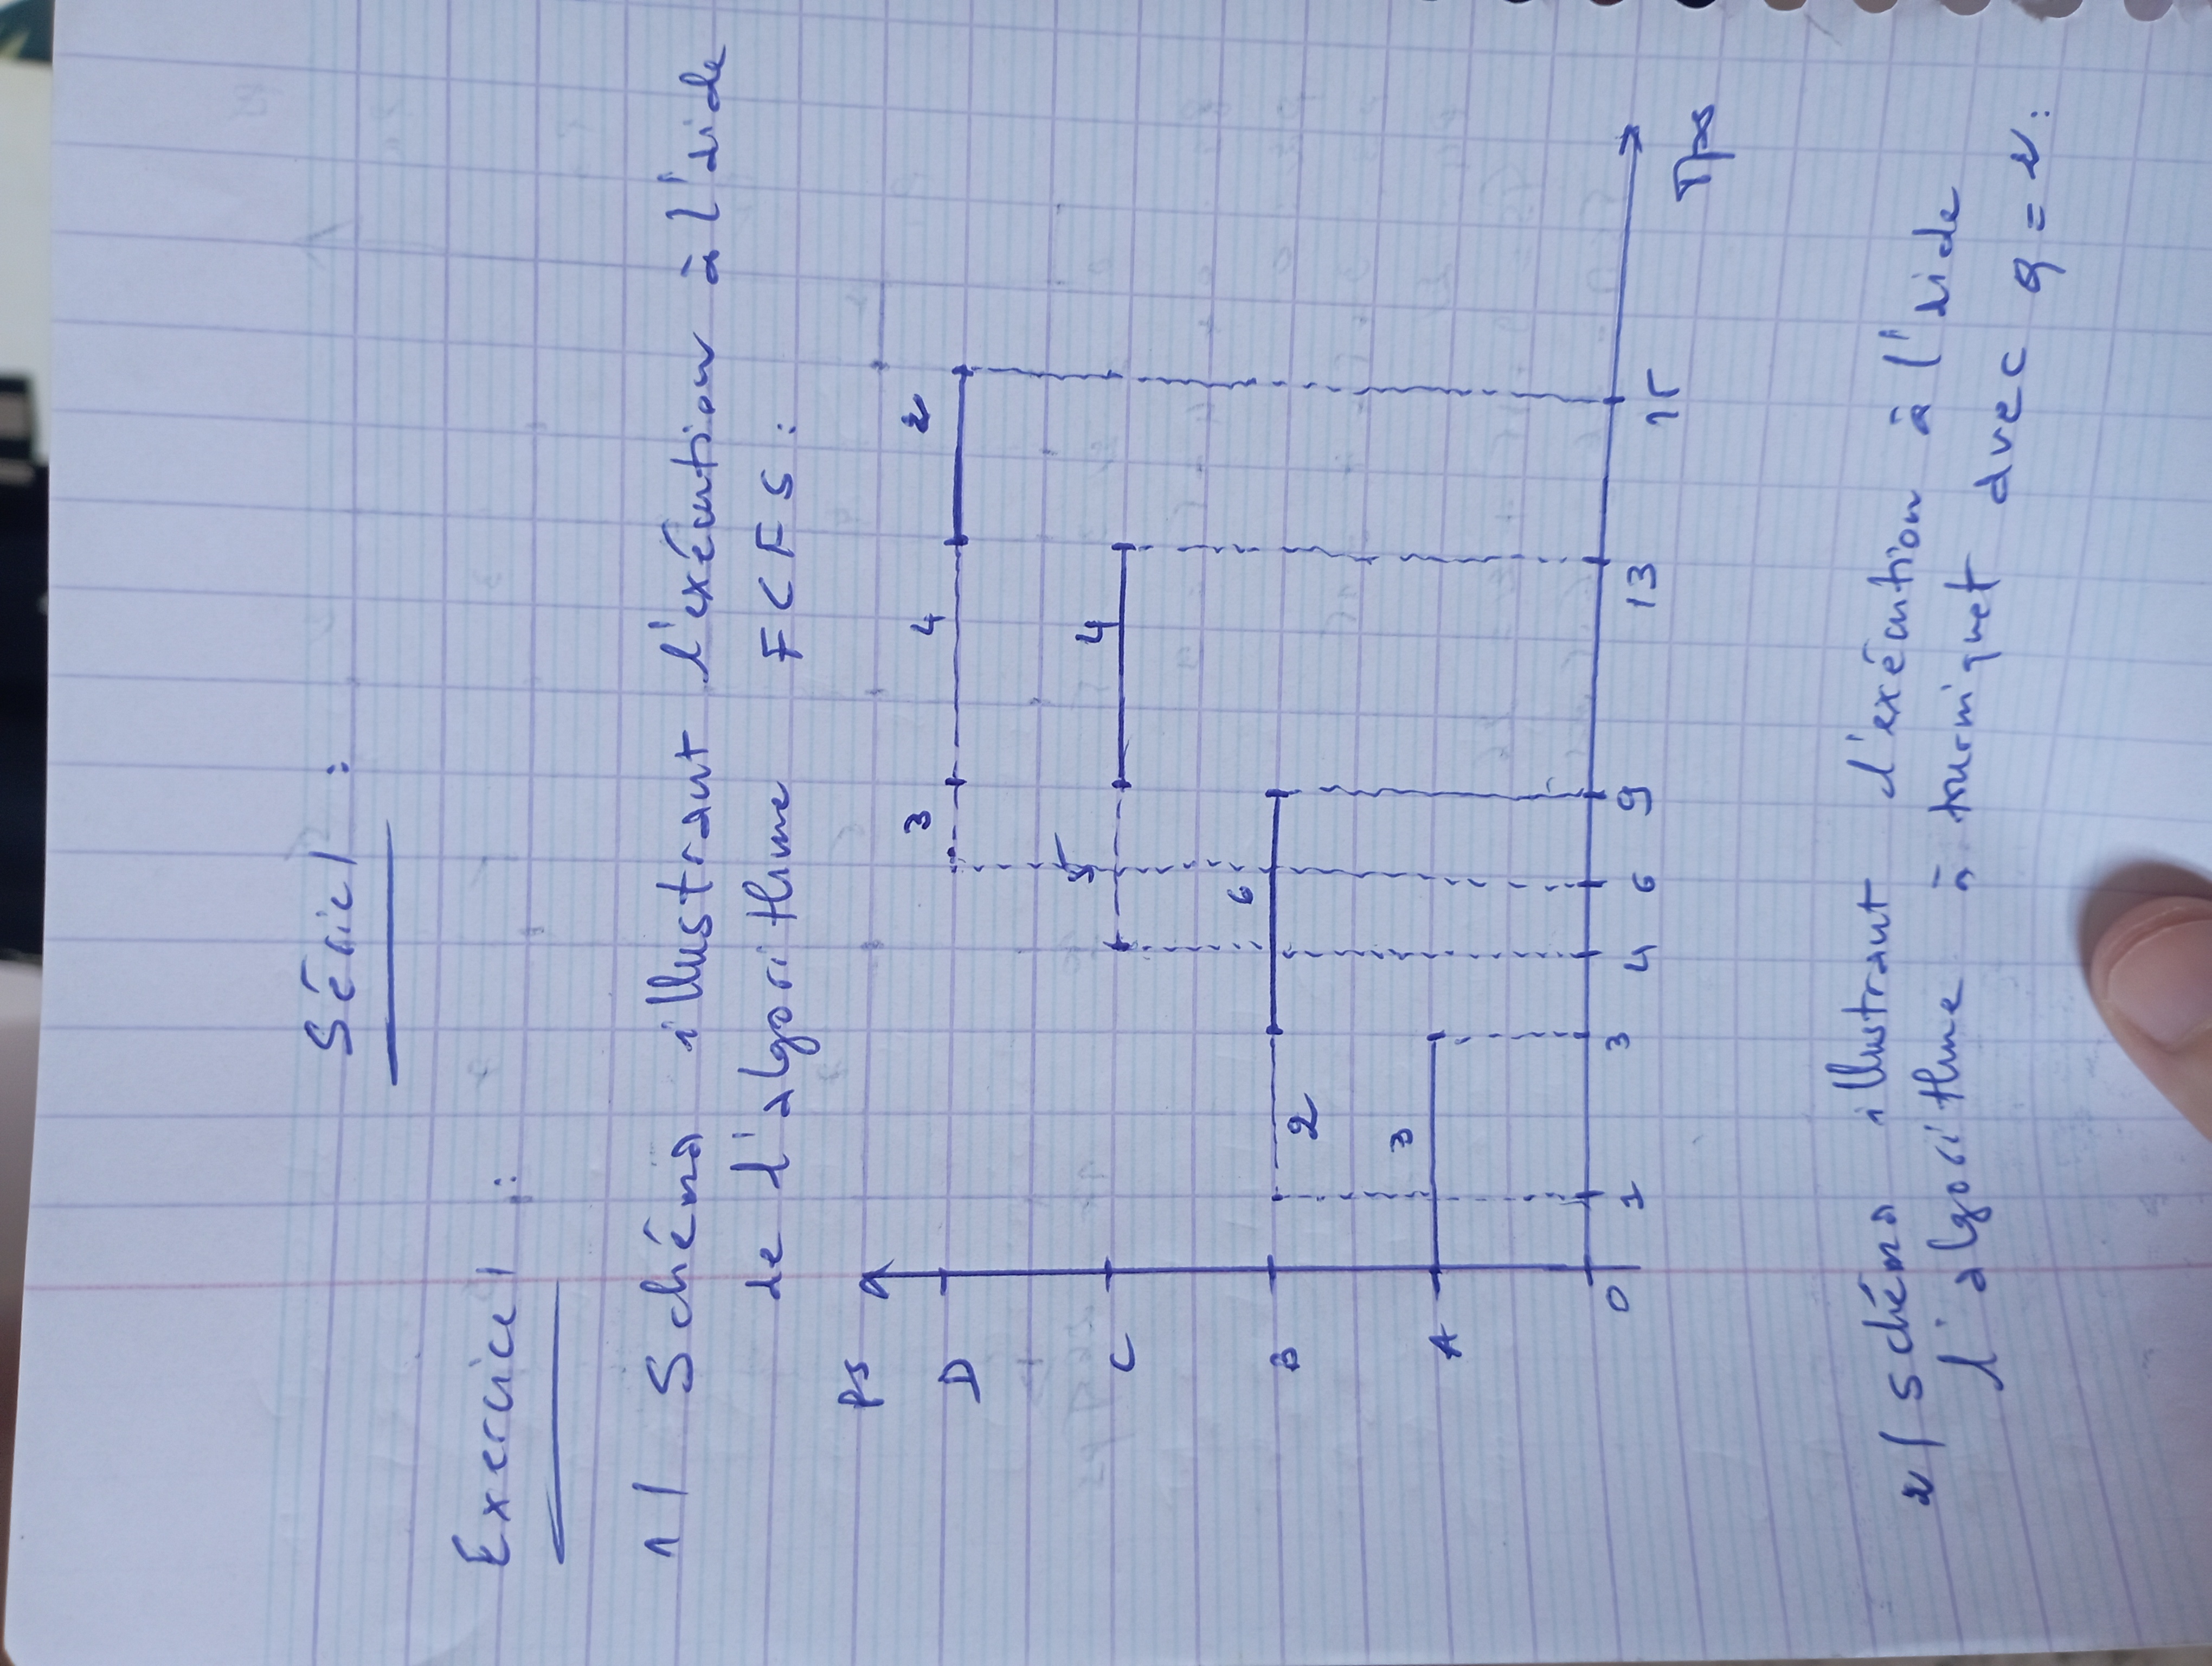 Série 1 :
Exercice 1 :
1/ Schéma illustrant l'exécution à l'aide
de l'algorithme FCFS :
Ps
D 3 4 2
5
C 4
6
B 2
3
A
0 1 3 4 6 9 13 15
Tps
2/ schéma illustrant l'exécution à l'aide
l'algorithme à tourniquet avec Q = 2 :